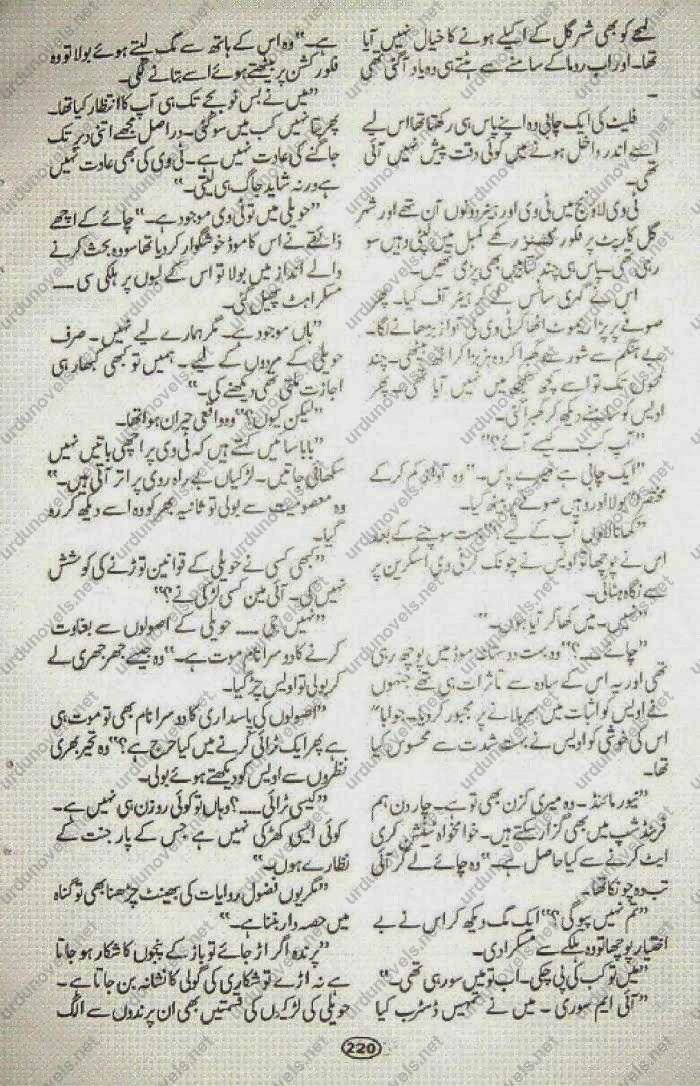 لمحے کو بھی شہر گل کے اکیلے ہونے کا خیال نہیں آیا
تھا۔ اور اب روما کے سامنے سے ہٹتے ہی وہ یاد آ گئی تھی
۔
فلیٹ کی ایک چابی وہ اپنے پاس ہی رکھتا تھا اس لیے
اسے اندر داخل ہونے میں کوئی دقت پیش نہیں آئی
تھی۔
ٹی وی لاؤنج میں ٹی وی اور ہیٹر دونوں آن تھے اور شہر
گل کارپٹ پر فلور کشنز رکھے کمبل میں لپٹی وہیں سو
رہی تھی۔ پاس ہی چند کتابیں بھی پڑی تھیں۔
اس نے گہری سانس لے کر ہیٹر آف کیا۔ پھر
صوفے پر پڑا ریموٹ اٹھا کر ٹی وی کی آواز بڑھانے لگا۔
بے ہنگم سے شور سے گھبرا کر وہ ہڑبڑا کر اٹھ بیٹھی۔ چند
لمحوں تک تو اسے کچھ سمجھ میں نہیں آیا تھا۔ پھر
اویس کو سامنے دیکھ کر گھبرا گئی۔
"آپ کب۔۔۔ کیسے آئے؟"
"ایک چابی ہے میرے پاس۔" وہ آواز کم کر کے
مختصراً بولا اور وہیں صوفے پر بیٹھ گیا۔
"کھانا لاؤں آپ کے لیے؟" بہت سوچنے کے بعد
اس نے پوچھا تو اویس نے چونک کر ٹی وی اسکرین پر
سے نگاہ ہٹائی۔
"نہیں۔ میں کھا کر آیا ہوں۔"
"چائے۔۔۔؟" وہ بہت دوستانہ موڈ میں پوچھ رہی
تھی اور یہ اس کے سادہ سے تاثرات ہی تھے جنہوں
نے اویس کو اثبات میں سر ہلانے پر مجبور کر دیا۔ جواباً
اس کی خوشی کو اویس نے بہت شدت سے محسوس کیا
تھا۔
"نیور مائنڈ۔ وہ میری کزن بھی تو ہے۔ چار دن ہم
فرینڈ شپ میں بھی گزار سکتے ہیں۔ خوامخواہ ٹینشن کری
ایٹ کرنے سے کیا حاصل ہے۔" وہ چائے لے کر آئی
تب وہ چونکا تھا۔
"تم نہیں پیو گی؟" ایک مگ دیکھ کر اس نے بے
اختیار پوچھا تو وہ ہلکے سے مسکرا دی۔
"میں تو کب کی پی چکی۔ اب تو میں سو رہی تھی۔"
"آئی ایم سوری۔ میں نے تمہیں ڈسٹرب کیا
ہے۔" وہ اس کے ہاتھ سے مگ لیتے ہوئے بولا تو وہ
فلور کشن پر بیٹھتے ہوئے اسے بتانے لگی۔
"میں نے بس نو بجے تک ہی آپ کا انتظار کیا تھا۔
پھر پتا نہیں کب میں سو گئی۔ دراصل مجھے اتنی دیر تک
جاگنے کی عادت نہیں ہے۔ ٹی وی کی بھی عادت نہیں
ہے ورنہ شاید جاگ ہی لیتی۔"
"حویلی میں تو ٹی وی موجود ہے۔" چائے کے اچھے
ذائقے نے اس کا موڈ خوشگوار کر دیا تھا سو وہ بحث کرنے
والے انداز میں بولا تو اس کے لبوں پر ہلکی سی ۔۔۔۔
مسکراہٹ پھیل گئی۔
"ہاں موجود ہے۔ مگر ہمارے لیے نہیں۔ صرف
حویلی کے مردوں کے لیے۔ ہمیں تو کبھی کبھار ہی
اجازت ملتی تھی دیکھنے کی۔"
"لیکن کیوں؟" وہ واقعی حیران ہوا تھا۔
"بابا سائیں کہتے ہیں کہ ٹی وی پر اچھی باتیں نہیں
سکھائی جاتیں۔ لڑکیاں بے راہ روی پر اتر آتی ہیں۔"
وہ معصومیت سے بولی تو ثانیہ بھر کو وہ اسے دیکھ کر رہ
گیا۔
"کبھی کسی نے حویلی کے قوانین توڑنے کی کوشش
نہیں کی۔ آئی مین کسی لڑکی نے؟"
"نہیں جی ۔۔۔۔ حویلی کے اصولوں سے بغاوت
کرنے کا دوسرا نام موت ہے۔" وہ جیسے جھرجھری لے
کر بولی تو اویس چڑ گیا۔
"اصولوں کی پاسداری کا دوسرا نام بھی تو موت ہی
ہے پھر ایک ٹرائی کرنے میں کیا حرج ہے؟" وہ تحیر بھری
نظروں سے اویس کو دیکھتے ہوئے بولی۔
"کیسی ٹرائی ۔۔۔۔؟ وہاں تو کوئی روزن ہی نہیں ہے۔
کوئی ایسی کھڑکی نہیں ہے جس کے پار جنت کے
نظارے ہوں۔"
"مگر یوں فضول روایات کی بھینٹ چڑھنا بھی تو گناہ
میں حصہ دار بننا ہے۔"
"پرندہ اگر اڑ جائے تو باز کے پنجوں کا شکار ہو جاتا
ہے نہ اڑے تو شکاری کی گولی کا نشانہ بن جاتا ہے۔
حویلی کی لڑکیوں کی قسمتیں بھی ان پرندوں سے الگ
220
urdunovels.net